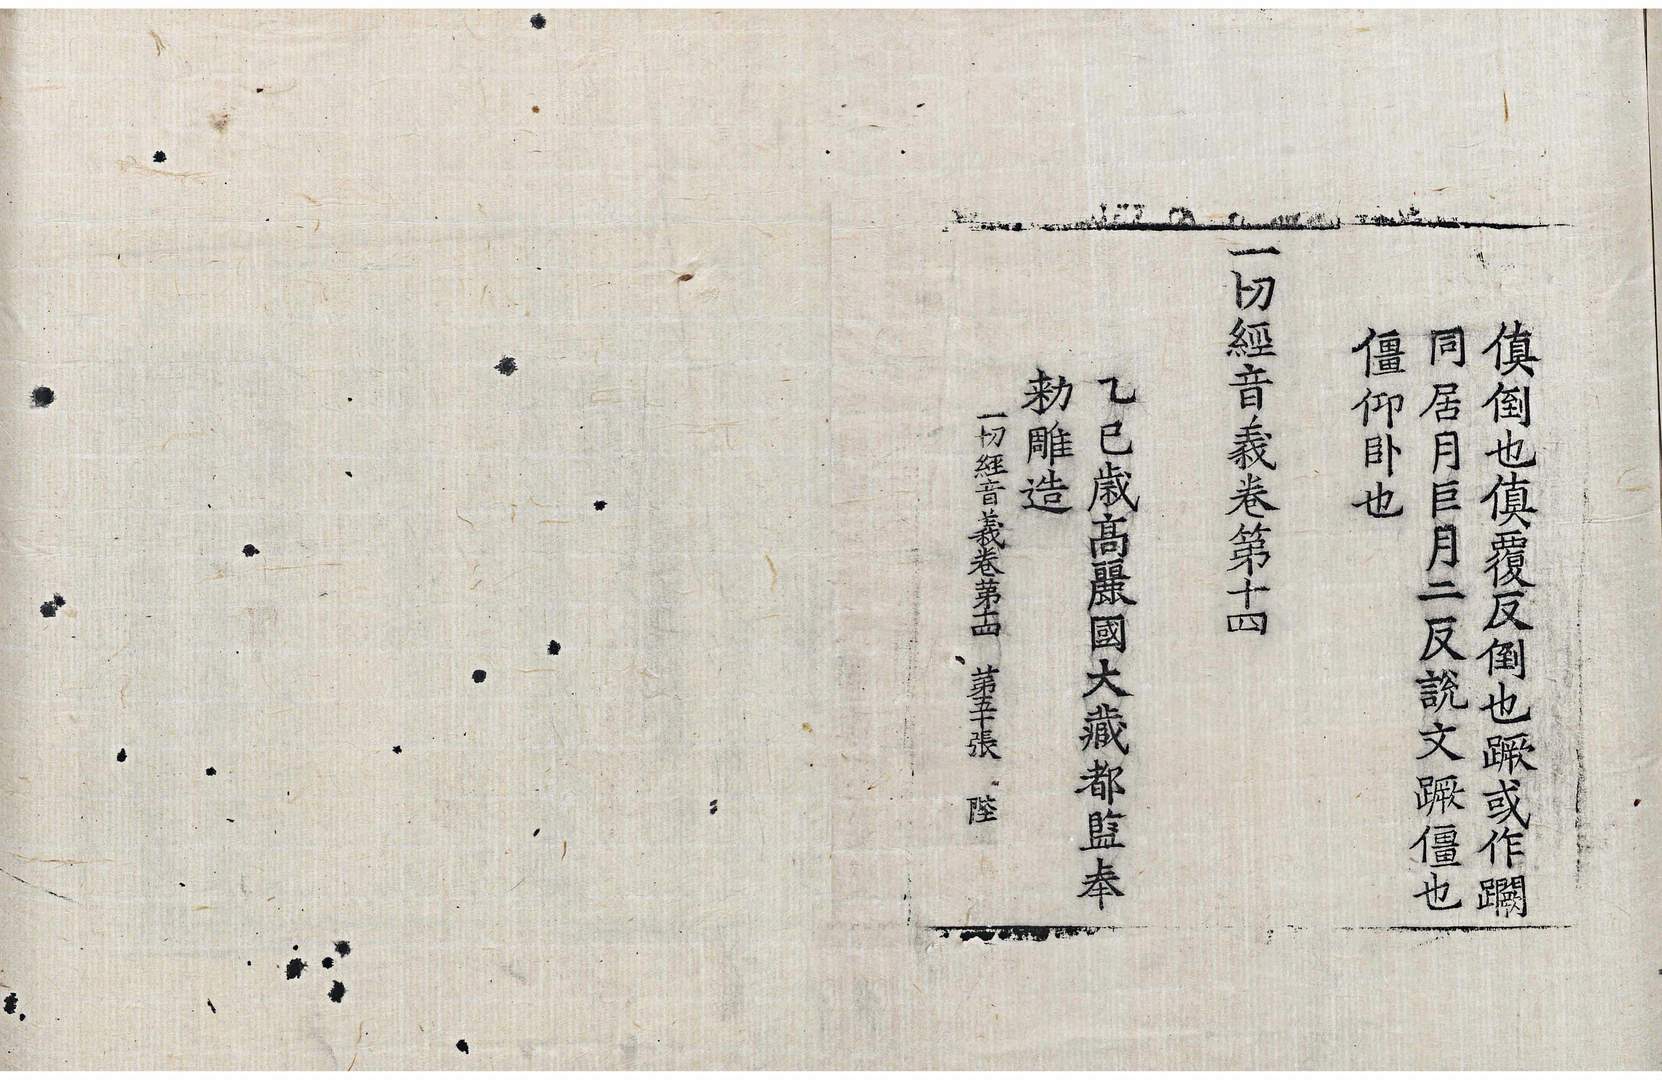 傎倒也傎覆反倒也蹶或作𨇮
同居月巨月二反說文蹶僵也
僵仰卧也
一切經音義卷第十四
乙巳歲高麗國大藏都監奉
勑雕造
一切經音義卷苐十四　苐五十張　陛